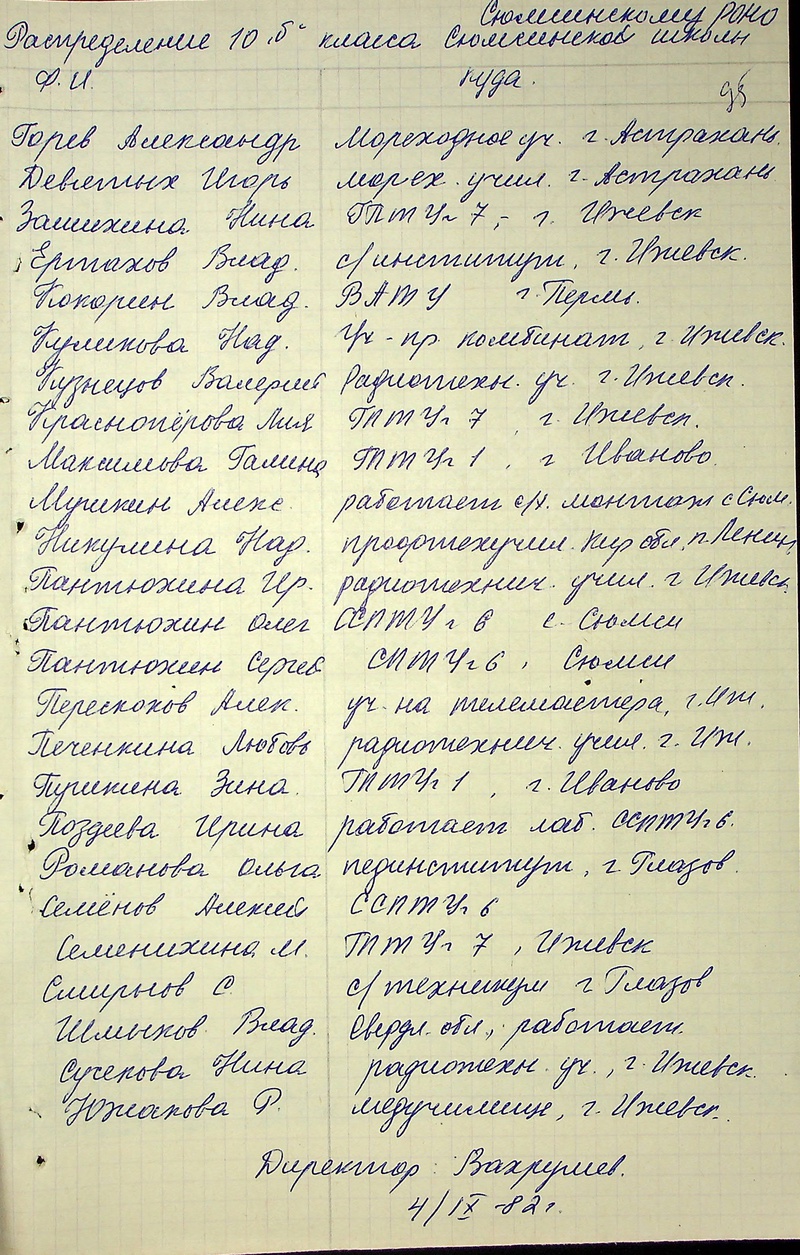 Сюмсинскому РОНО
Распределение 10 „б" класса Сюмсинской школы
Ф.И. куда.
95
Горев Александр Мореходное уч. г. Астрахань.
Девятых Игорь морех. учил. г. Астрахань
Зашихина Нина ГПТУ-7, г. Ижевск
Ертахов Влад. с/институт, г. Ижевск.
Кокорин Влад. ВАТУ г. Пермь.
Куликова Над. Уч-пр. комбинат, г. Ижевск.
Кузнецов Валерий Радиотехн. уч. г. Ижевск.
Краснопёрова Лия ГПТУ-7, г. Ижевск.
Максимова Галина ГПТУ-1, г Иваново.
Мушкин Алекс. работает с/х. монтаж с Сюм.
Никулина Над. профтехучил. Кир обл, п. Ленин
Пантюхина Ир. радиотехнич. учил. г Ижевск.
Пантюхин Олег ССПТУ-6 с. Сюмси
Пантюхин Сергей СПТУ-6, Сюмси
Перескоков Алек. уч. на телемастера, г. Иж.
Печенкина Любовь радиотехнич. учил. г. Иж.
Пушкина Зина. ГПТУ-1, г. Иваново
Поздеева Ирина работает лаб. ССПТУ-6.
Романова Ольга пединститут, г Глазов.
Семёнов Алексей ССПТУ-6
Семенихина М. ГПТУ-7, Ижевск
Смирнов С. с/техникум г Глазов
Шмыков Влад. Свердл. обл., работает.
Сучкова Нина радиотехн. уч., г. Ижевск.
Южакова Р. медучилище, г. Ижевск.
Директор: Вахрушев.
4/IX-82 г.